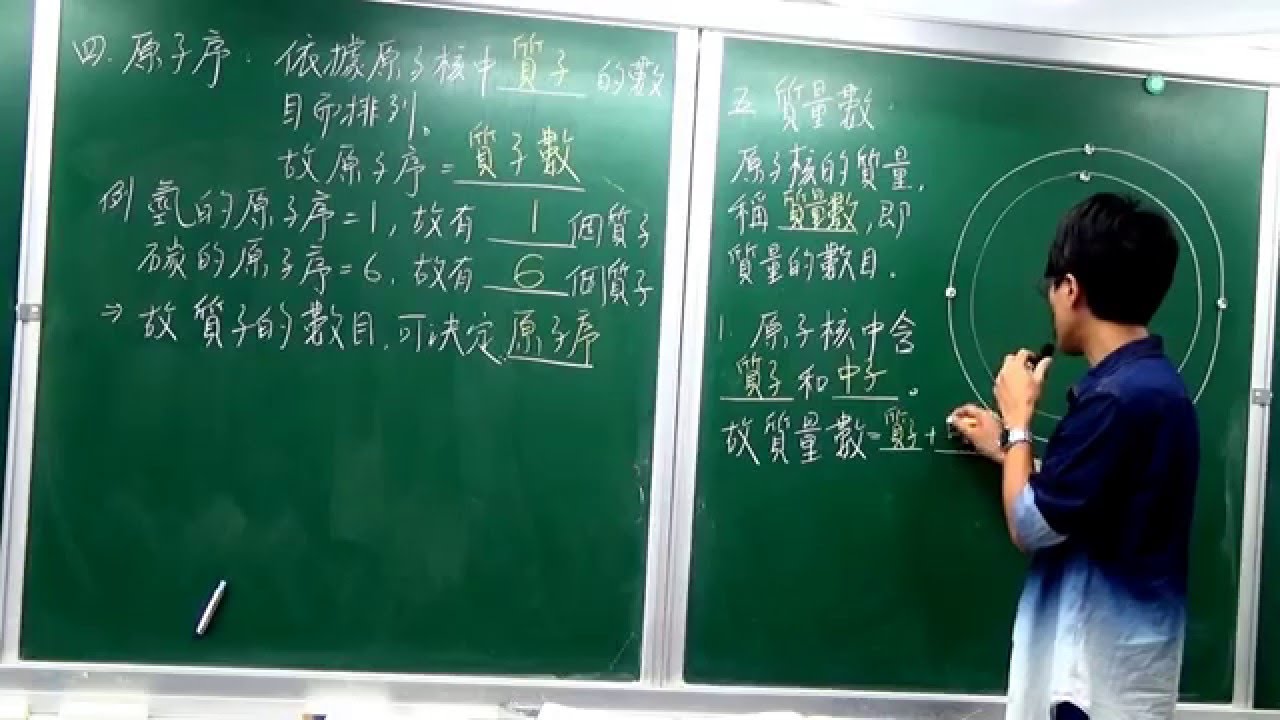 四. 原子序: 依據原子核中 質子 的數
目而排列。
故原子序 = 質子數
例 氫的原子序=1, 故有 1 個質子
碳的原子序=6, 故有 6 個質子
⇒ 故質子的數目, 可決定 原子序
五 質量數:
原子核的質量,
稱 質量數, 即
質量的數目.
1. 原子核中含
質子 和 中子 。
故質量數=質子+